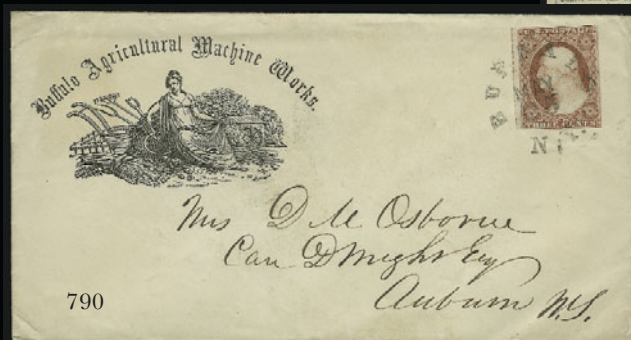 Buffalo Agricultural Machine Works.
THREE CENTS
N.Y.
Mrs D M Osborne
Care D Wright Esq
Auburn N.Y.
790